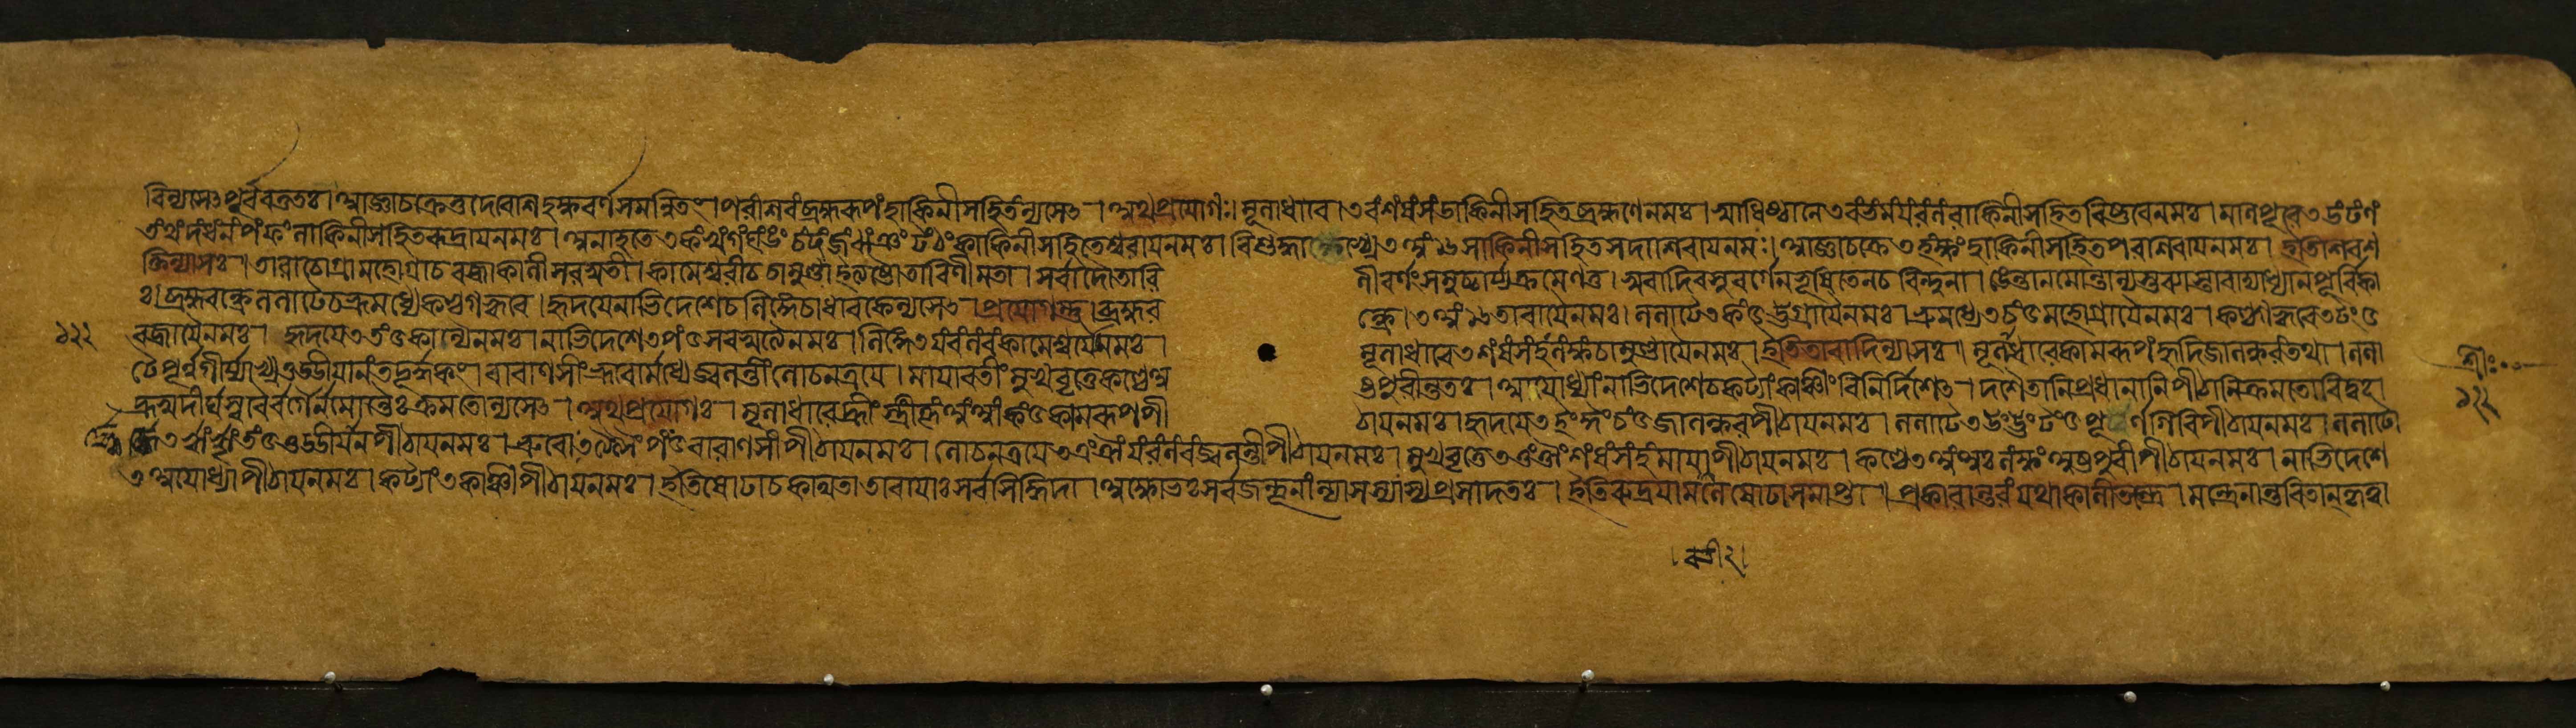 বিন্যসেৎ পূর্ব্ববত্ততঃ। আজ্ঞাচক্রে তু দেবেশি হক্ষবর্ণসমন্বিতং। পরশিবং ব্রহ্মরূপং হাকিনীসহিতং ন্যসেৎ। অথ প্রয়োগঃ। মূলাধারে। এ বং শং ষং সং ডাকিনীসহিতব্রহ্মণে নমঃ। স্বাধিষ্ঠানে এ বং ভং মং যং রং লং রাকিনীসহিতবিষ্ণবে নমঃ। মণিপূরে এ ডং ঢং ণং
তং থং দং ধং নং পং ফং লাকিনীসহিতরুদ্রায় নমঃ। অনাহতে এ কং খং গং ঘং ঙং চং ছং জং ঝং ঞং টং ঠং কাকিনীসহিতেশ্বরায় নমঃ। বিশুদ্ধাখ্যে এ অং ১৬ সাকিনীসহিতসদাশিবায় নমঃ। আজ্ঞাচক্রে এ হং ক্ষং হাকিনীসহিতপরশিবায় নমঃ। ইতি শিবশ
ক্তিন্যাসঃ। তারা চোগ্রা মহোগ্রা চ বজ্রা কালী সরস্বতী। কামেশ্বরী চ চামুণ্ডা ইত্যষ্টৌ তারিণী মতা। সর্ব্বাদৌ তারি ণীবর্ণং সমুচ্চার্য্য ক্রমেণ তু। স্বরাদিবসুবর্গেন ভূষিতেন চ বিন্দুনা। ঙেন্তা নমোন্তা ন্যস্তব্যাস্তারাদ্যাখ্যানপূর্ব্বিকা
ঃ। ব্রহ্মরন্ধ্রে ললাটে চ ভ্রূমধ্যে কণ্ঠগহ্বরে। হৃদয়ে নাভিদেশে চ লিঙ্গে চাধারকে ন্যসেৎ। প্রয়োগস্তু। ব্রহ্মর ন্ধ্রে। এ অং ১৬ তারায়ৈ নমঃ। ললাটে এ কং ৫ উগ্রায়ৈ নমঃ। ভ্রূমধ্যে এ চং ৫ মহোগ্রায়ৈ নমঃ। কণ্ঠগহ্বরে এ টং ৫
বজ্রায়ৈ নমঃ। হৃদয়ে এ তং ৫ কাল্যৈ নমঃ। নাভিদেশে এ পং ৫ সরস্বত্যৈ নমঃ। লিঙ্গে এ যং রং লং বং কামেশ্বর্য্যৈ নমঃ। মূলাধারে এ শং ষং সং হং লং ক্ষং চামুণ্ডায়ৈ নমঃ। ইতি তারাদিন্যাসঃ। মূলাধারে কামরূপং হৃদি জালন্ধরং তথা। ললা
টে পূর্ণগির্য্যাখ্যং উড্ডীয়ানং তদূর্দ্ধকং। বারাণসীং ভ্রুবোর্মধ্যে জ্বলন্তীং লোচনত্রয়ে। মায়াবতীং মুখবৃত্তে কণ্ঠেঽ ষ্টপুরীন্ততঃ। অযোধ্যাং নাভিদেশে চ কট্যাং কাঞ্চীং বিনির্দিশেৎ। দশৈতানি প্রধানানি পীঠানি ক্রমতো বিদুঃ।
হ্রস্বদীর্ঘস্বরৈর্বর্গৈর্নমোন্তৈঃ ক্রমতো ন্যসেৎ। অথ প্রয়োগঃ। মূলাধারে অং আং কং ৫ কামরূপপী ঠায় নমঃ। হৃদয়ে এ ইং ঈং চং ৫ জালন্ধরপীঠায় নমঃ। ললাটে এ উং ঊং টং ৫ পূর্ণগিরিপীঠায় নমঃ। ললাটো
তং ৫ উড্ডীয়ানপীঠায় নমঃ। ভ্রুবো পং ৫ বারাণসীপীঠায় নমঃ। লোচনত্রয়ে এ এং ঐং যং রং লং বং জ্বলন্তীপীঠায় নমঃ। মুখবৃত্তে এ ওং ঔং শং ষং সং হং মায়াপীঠায় নমঃ। কণ্ঠে এ অং অঃ লং ক্ষং অষ্টপুরীপীঠায় নমঃ। নাভিদেশে
এ অযোধ্যাপীঠায় নমঃ। কট্যাং এ কাঞ্চীপীঠায় নমঃ। ইতি ষোঢ়া চ কথিতা তারায়াঃ সর্ব্বসিদ্ধিদা। অক্ষোভ্যঃ সর্ব্বজন্তূনাং ন্যাসস্যাস্য প্রসাদতঃ। ইতি রুদ্রযামলে ষোঢ়া সমাপ্তা। প্রকারান্তরং যথা কালীতন্ত্রে।
১২২
শ্রীঃ
১২২